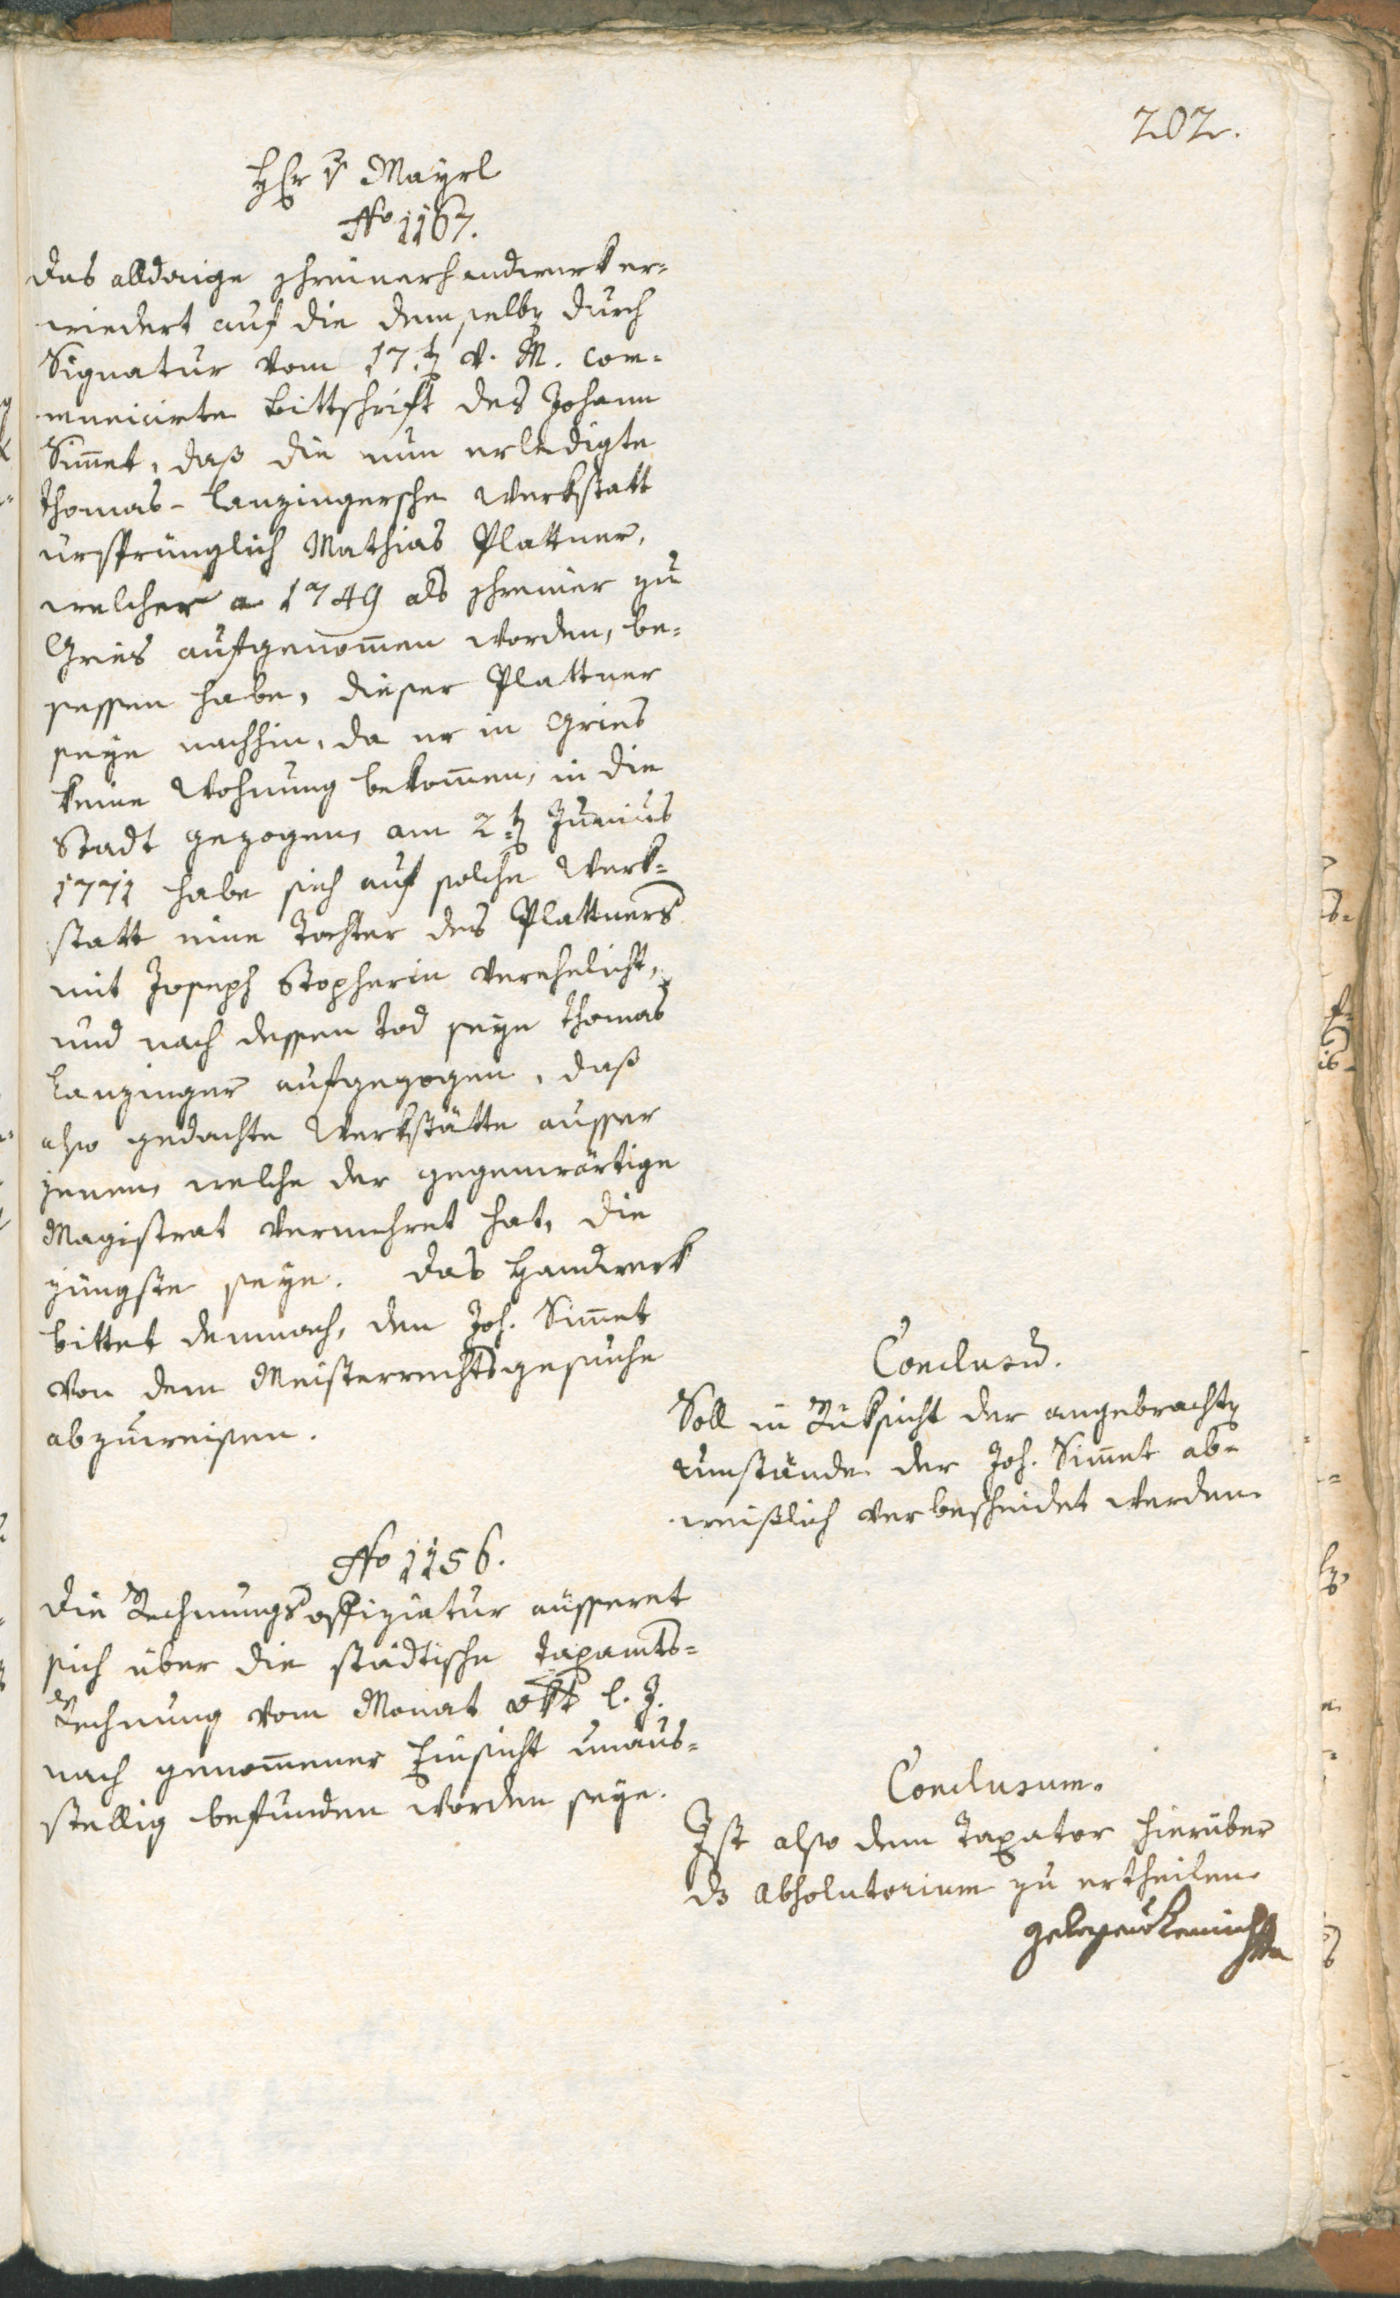 202.
Hr v Mayrl
No 1167.
das alldasige Schreinerhandwerk er-
wiedert auf die demselbn durch
Signatur vom 17.tn v. M. com-
municirte Bittschrift des Johann
Sim̄et, daß die nun erledigte
Thomas-Lanzingersche Werkstatt
ursprünglich Mathias Plattner,
welcher a 1749 als Schreiner zu
Gries aufgenom̄en worden, be-
sessen habe, dieser Plattner
seye nachhin, da er in Gries
keine Wohnung bekom̄en, in die
Stadt gezogen, am 2.tn Junius
1771 habe sich auf solche Werk-
statt eine Tochter des Plattners
mit Joseph Stopherin verehelicht,
und nach dessen Tod seye Thomas
Lanzinger aufgezogen, daß
also gedachte Werkstätte ausser
jenen, welche der gegenwärtige
Magistrat vermehret hat, die
jüngste seye. Das Handwerk
bittet demnach, den Joh. Sim̄et
von dem Meisterrechtsgesuche
abzuweisen.
Conclusū.
Soll in Rüksicht der angebrachtn
Umstände der Joh. Sim̄et ab-
weislich verbescheidet werden.
No 1156.
Die Rechnungsoffiziatur äusseret
sich über die städtische Taxamts-
Rechnung vom Monat Okt. l. J.
nach genom̄ener Einsicht unaus-
stellig befunden worden seye.
Conclusum.
Ist also dem Taxator hierüber
ds Absolutorium zu ertheilen.